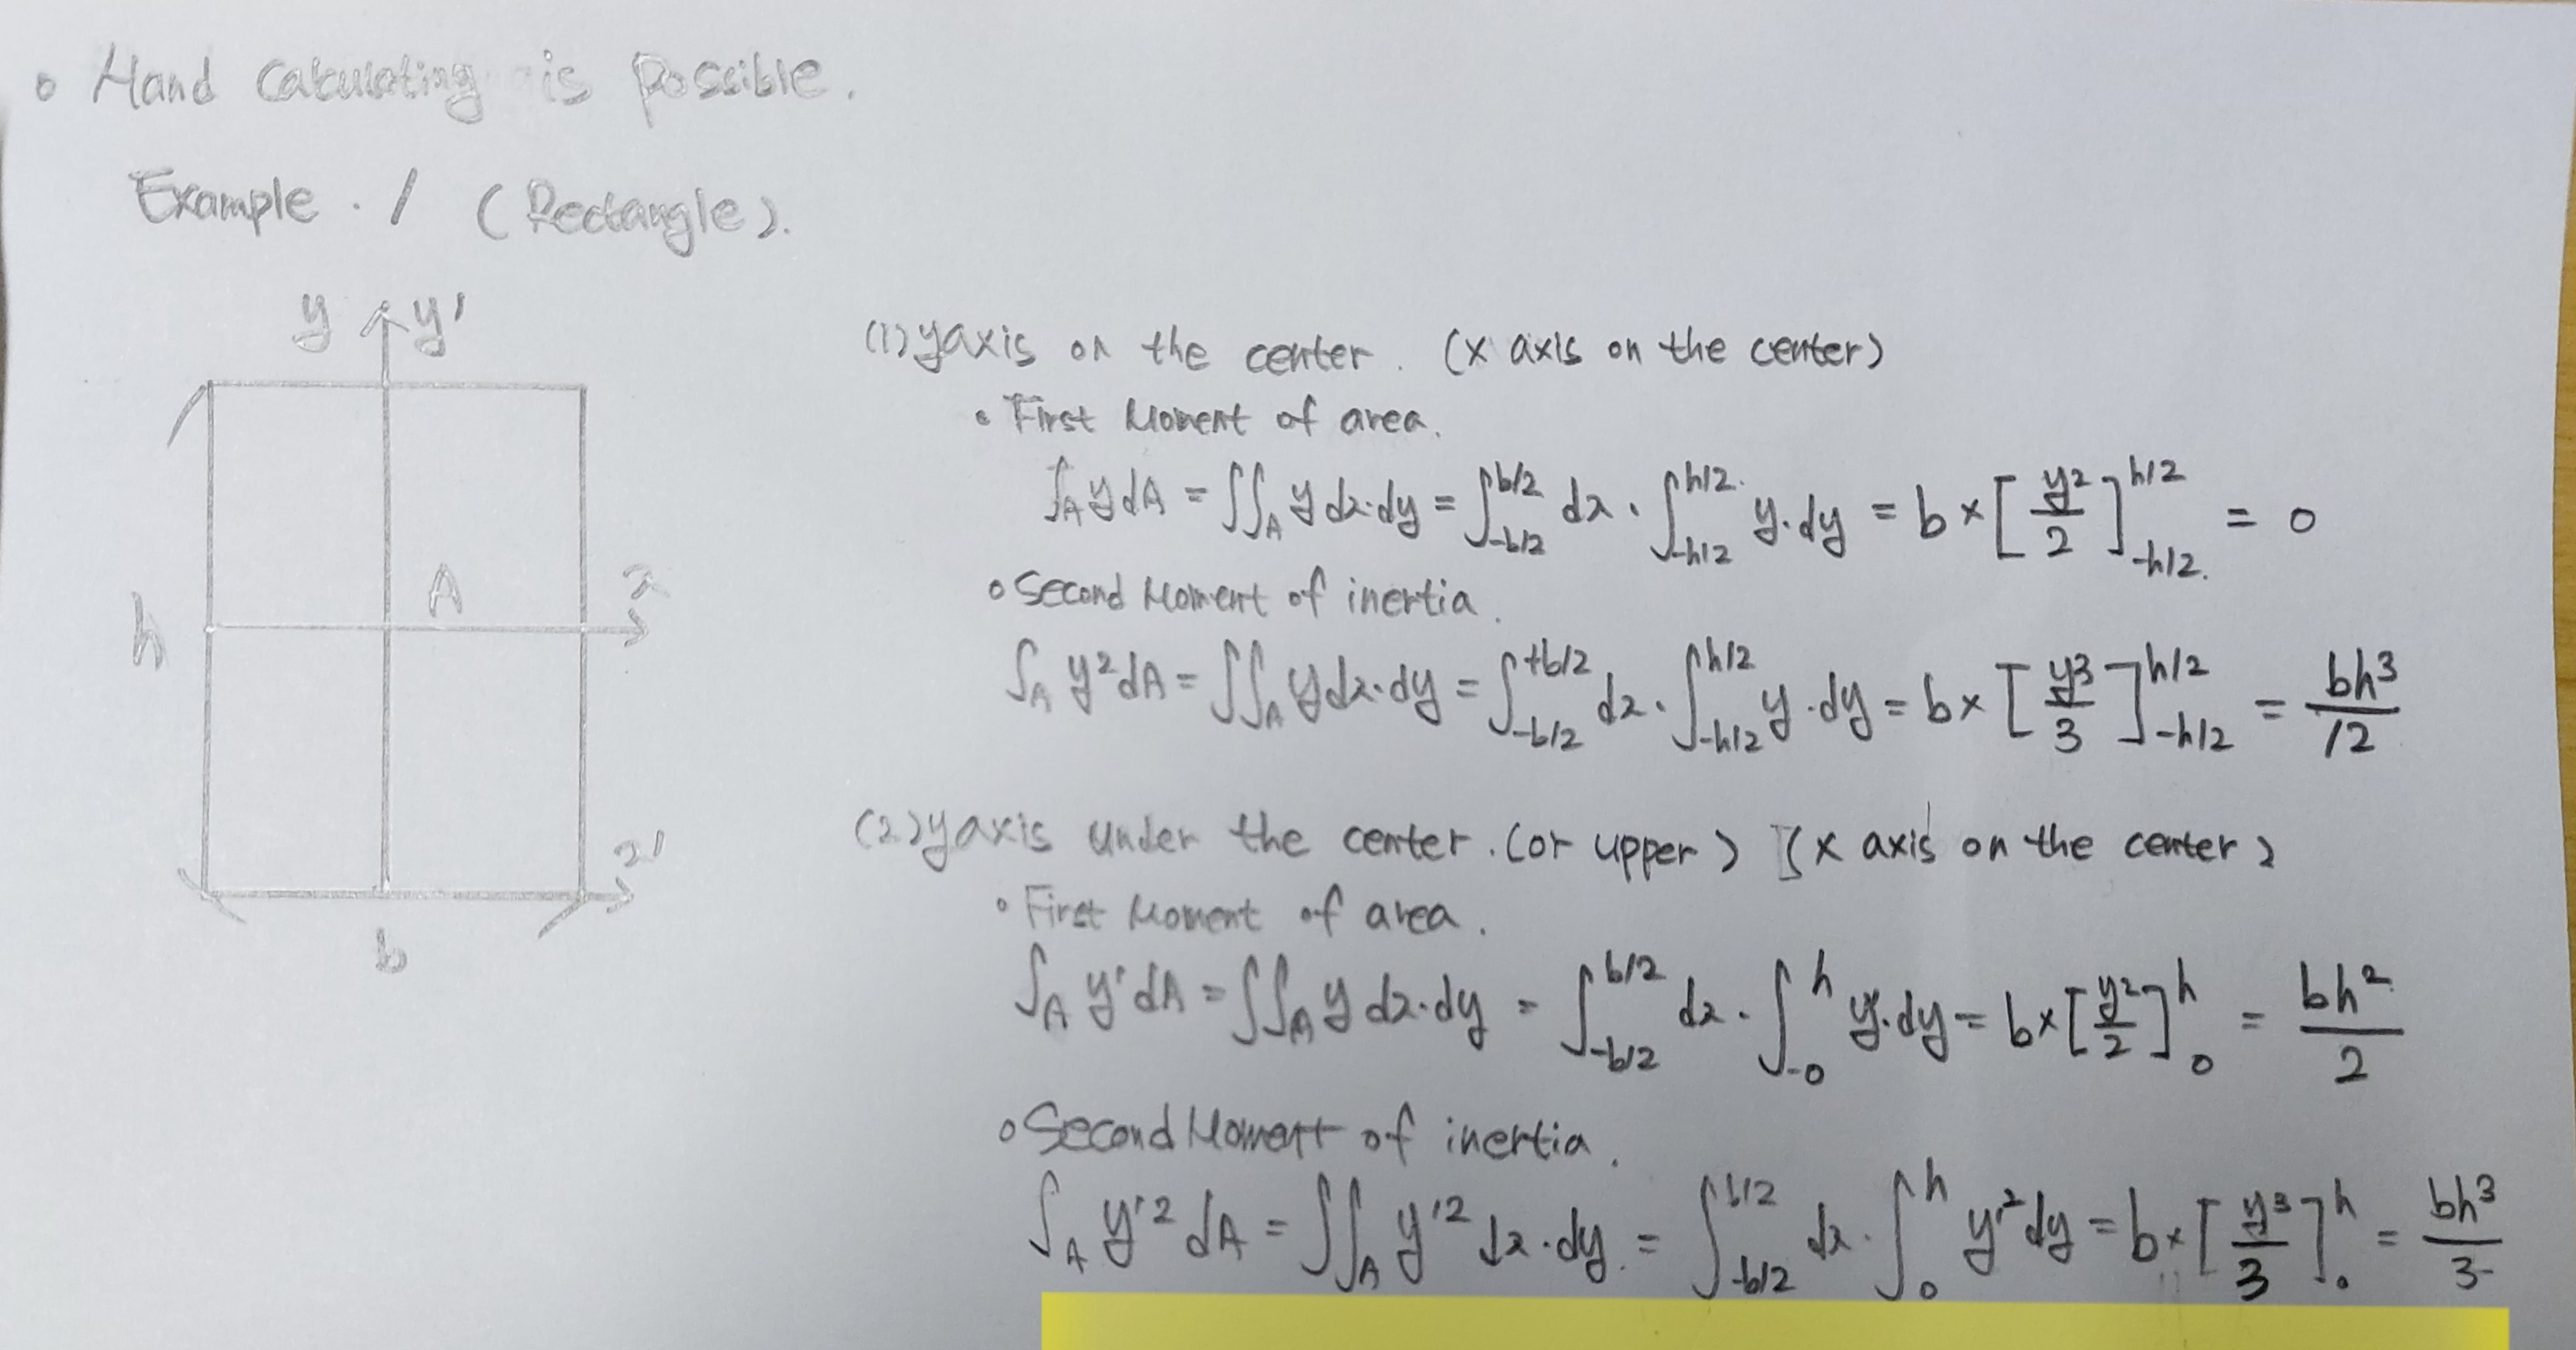 ∘ Hand Calculating is possible.
Example . 1 (Rectangle).
y y'
A
x
h
x'
b
(1) y axis on the center. (x axis on the center)
• First Moment of area.
∫_A y dA = ∬_A y dx·dy = ∫_{-b/2}^{b/2} dx · ∫_{-h/2}^{h/2} y·dy = b × [y²/2]_{-h/2}^{h/2} = 0
∘ Second Moment of inertia.
∫_A y² dA = ∬_A y dx·dy = ∫_{-b/2}^{+b/2} dx · ∫_{-h/2}^{h/2} y·dy = b × [y³/3]_{-h/2}^{h/2} = bh³/12
(2) y axis under the center. (or upper) (x axis on the center)
∘ First Moment of area.
∫_A y' dA = ∬_A y dx·dy = ∫_{-b/2}^{b/2} dx · ∫_{-0}^{h} y·dy = b × [y²/2]_0^h = bh²/2
∘ Second Moment of inertia.
∫_A y'² dA = ∬_A y'² dx·dy = ∫_{-b/2}^{b/2} dx · ∫_0^h y'² dy = b × [y³/3]_0^h = bh³/3